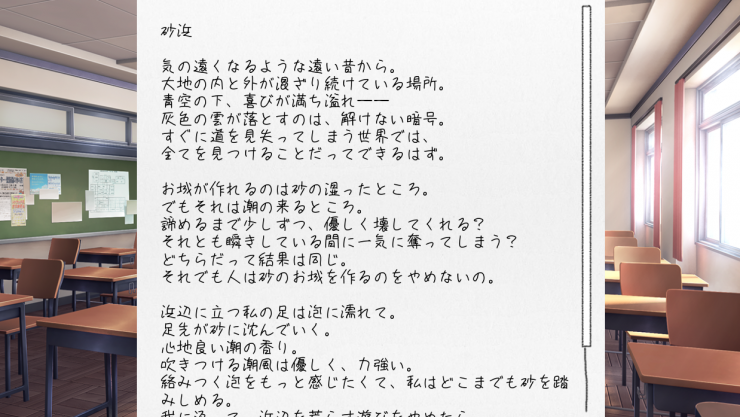 砂浜
気の遠くなるような遠い昔から。
大地の内と外が混ざり続けている場所。
青空の下、喜びが満ち溢れ――
灰色の雲が落とすのは、解けない暗号。
すぐに道を見失ってしまう世界では、
全てを見つけることだってできるはず。
お城が作れるのは砂の湿ったところ。
でもそれは潮の来るところ。
諦めるまで少しずつ、優しく壊してくれる？
それとも瞬きしている間に一気に奪ってしまう？
どちらだって結果は同じ。
それでも人は砂のお城を作るのをやめないの。
浜辺に立つ私の足は泡に濡れて。
足先が砂に沈んでいく。
心地良い潮の香り。
吹きつける潮風は優しく、力強い。
絡みつく泡をもっと感じたくて、私はどこまでも砂を踏
みしめる。